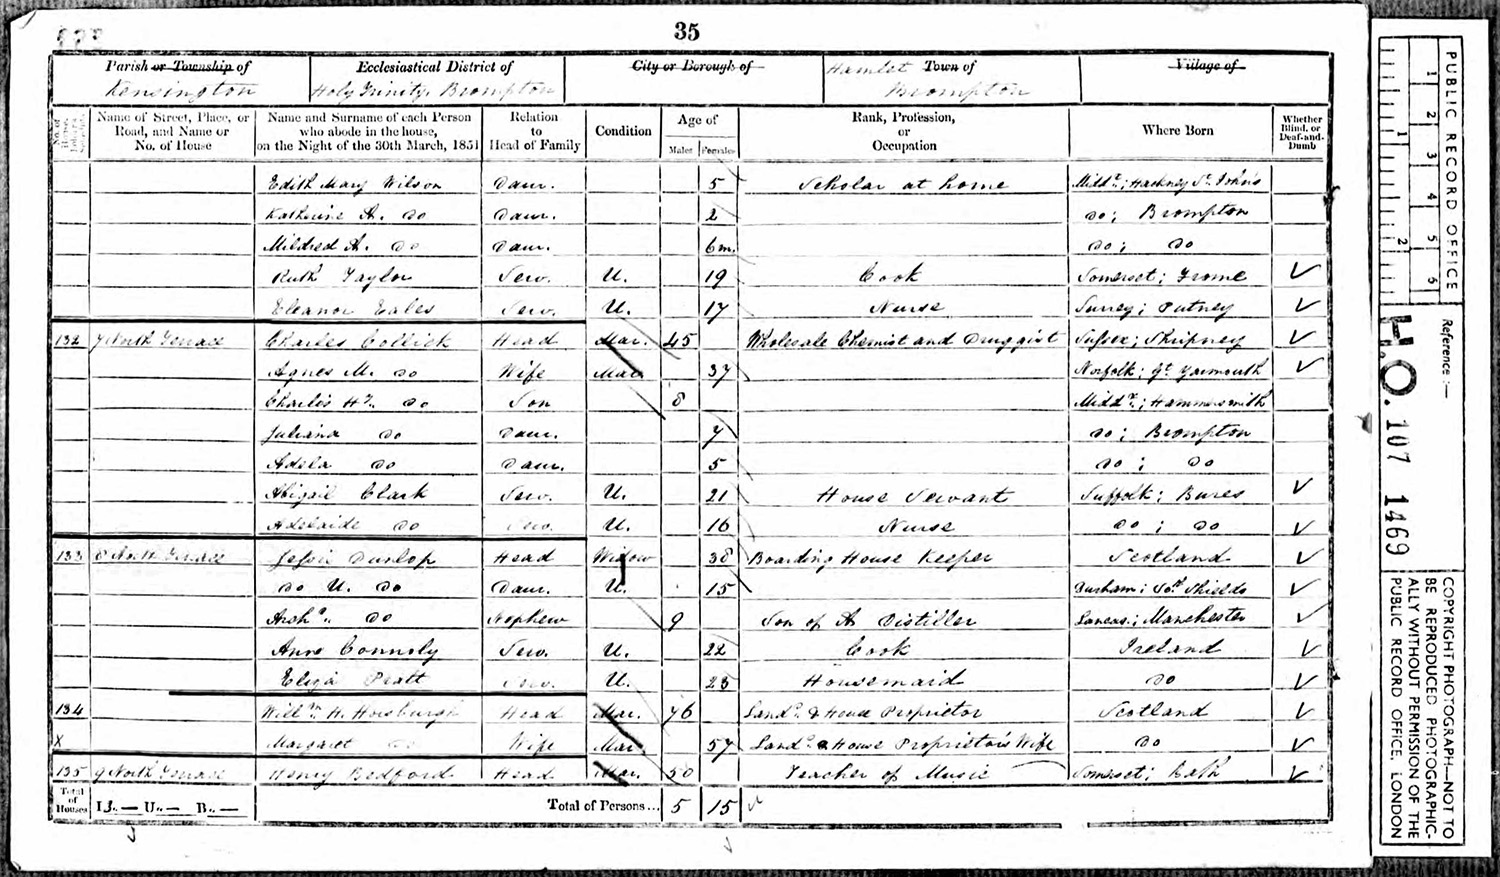 35
Parish or Township of Kensington
Ecclesiastical District of Holy Trinity, Brompton
City or Borough of
Hamlet Town of Brompton
Village of
Name of Street, Place, or Road, and Name or No. of House
Name and Surname of each Person who abode in the house, on the Night of the 30th March, 1851
Relation to Head of Family
Condition
Age of Males Females
Rank, Profession, or Occupation
Where Born
Whether Blind, or Deaf-and-Dumb
Edith Mary Wilson Daur. 5 Scholar at home Middx; Hackney St. John's
Katherine A. do Daur. 2 do; Brompton
Mildred A. do Daur. 6m. do; do
Ruth Taylor Serv. U. 19 Cook Somerset; Frome
Eleanor Eales Serv. U. 17 Nurse Surrey; Putney
132 7 North Terrace Charles Collick Head Mar. 45 Wholesale Chemist and Druggist Sussex; Shripney
Agnes M. do Wife Mar. 37 Norfolk; Gt. Yarmouth
Charles Hy. do Son 8 Middx.; Hammersmith
Juliana do Daur. 7 do; Brompton
Adela do Daur. 5 do; do
Abigail Clark Serv. U. 21 House Servant Suffolk; Bures
Adelaide do Serv. U. 16 Nurse do; do
133 8 North Terrace Dunlop Head Widow 38 Boarding House Keeper Scotland
do U. do Daur. U. 15 Durham; Soth Shields
Archd. do Nephew 9 Son of A Distiller Lancas.; Manchester
Anne Connoly Serv. U. 22 Cook Ireland
Eliza Pratt Serv. U. 23 Housemaid do
134 Willm. H. Horsburgh Head Mar. 76 Landd. & House Proprietor Scotland
X Margaret do Wife Mar. 57 Landd. & House Proprietor's Wife do
135 9 North Terrace Henry Bedford Head Mar. 50 Teacher of Music Somerset; Bath
Total of Houses I 3.— U.— B.— Total of Persons... 5 15
PUBLIC RECORD OFFICE
1 2 3 4 5 6
1 2
Reference:—
H.O. 107 1469
COPYRIGHT PHOTOGRAPH—NOT TO
BE REPRODUCED PHOTOGRAPHIC-
ALLY WITHOUT PERMISSION OF THE
PUBLIC RECORD OFFICE, LONDON